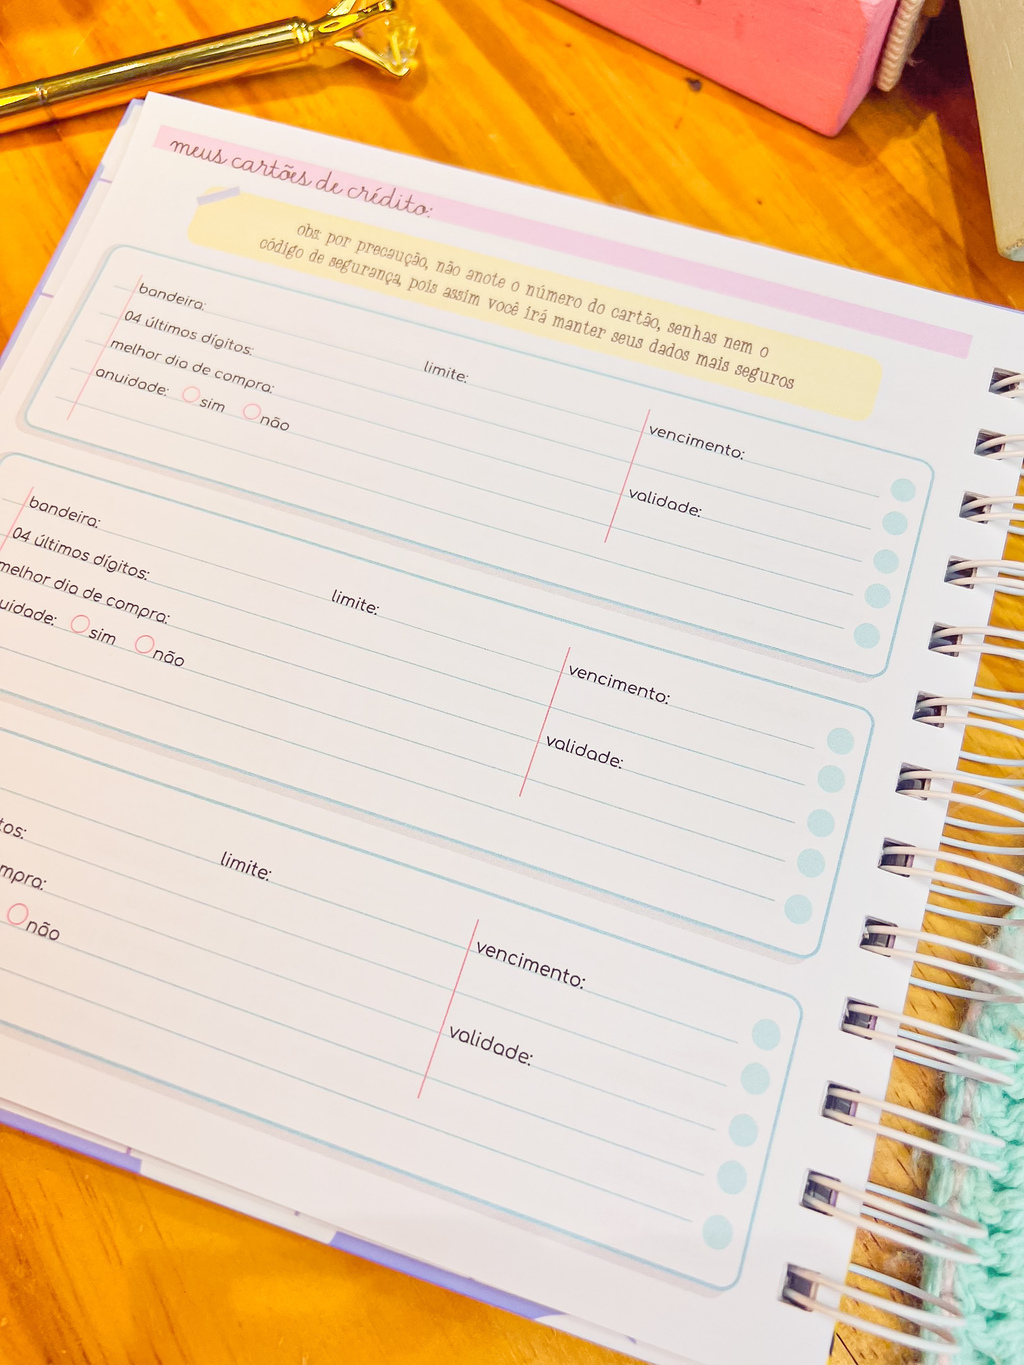 meus cartões de crédito:
obs: por precaução, não anote o número do cartão, senhas nem o
código de segurança, pois assim você irá manter seus dados mais seguros
bandeira:
04 últimos dígitos:
limite:
melhor dia de compra:
anuidade: sim não
vencimento:
validade:
bandeira:
04 últimos dígitos:
limite:
melhor dia de compra:
uidade: sim não
vencimento:
validade:
tos:
limite:
mpra:
não
vencimento:
validade: